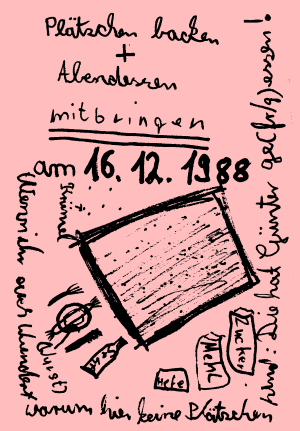 Plätzchen backen
+
Abendessen
mitbringen
am 16. 12. 1988
Krümel
Wenn ihr euch wundert
warum hier keine Plätzchen
sind: Die hat Günter ge(fr/g)essen!
(Wurst)
Hefe
Mehl
Zucker